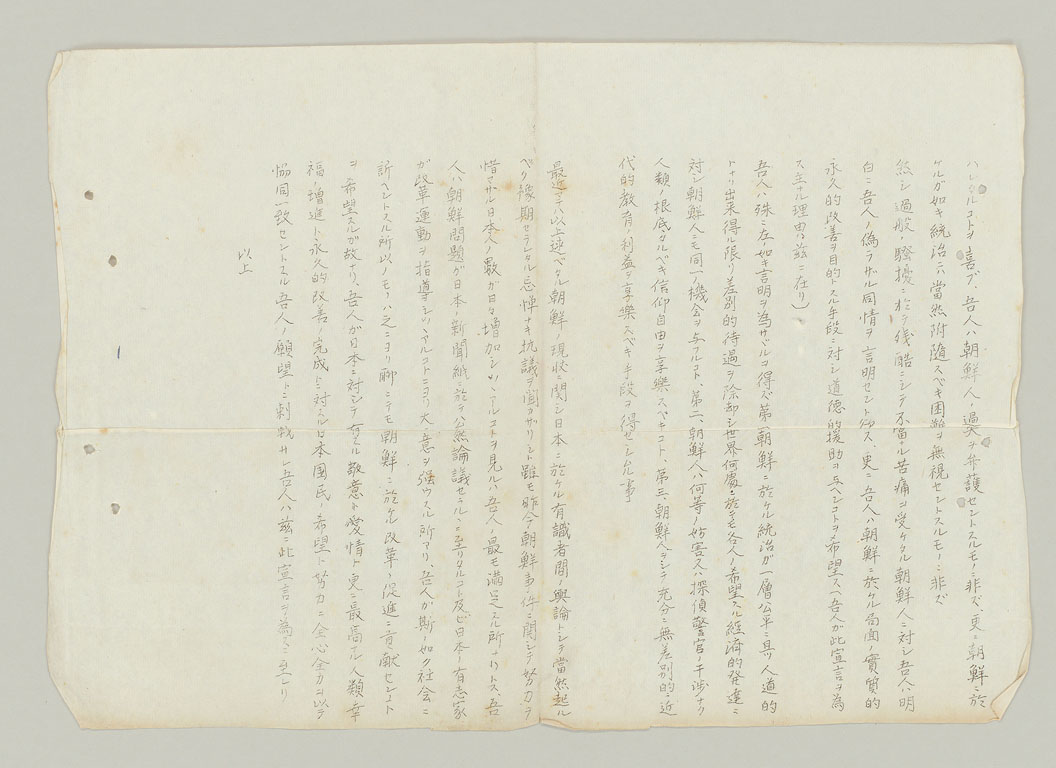 ハレタルコトヲ喜ブ、吾人ハ朝鮮人ノ過失ヲ弁護セントスルモノニ非ズ、更ニ朝鮮ニ於
ケルガ如キ統治ニハ当然附随スベキ困難ヲ無視セントスルモノニ非ズ
然シ過般ノ騒擾ニ於テ残酷ニシテ不当ナル苦痛ヲ受ケタル朝鮮人ニ対シ吾人ハ明
白ニ吾人ノ偽ラザル同情ヲ言明セントス、更ニ吾人ハ朝鮮ニ於ケル局面ノ實質的
永久的改善ヲ目的トスル手段ニ対シ道徳的援助ヲ与ヘンコトヲ希望ス(吾人ガ此宣言ヲ為
ス主ナル理由ハ茲ニ在リ)
吾人ハ殊ニ左ノ如キ言明ヲ為サザルヲ得ズ第一朝鮮ニ於ケル統治ガ一層公平ニ且ツ人道的
トナリ出来得ル限リ差別的待遇ヲ除却シ世界何處ニ於テモ各人ノ希望スル経済的発達ニ
対シ朝鮮人ニモ同一機会ヲ与フルコト、第二、朝鮮人ハ何等ノ妨害又ハ探偵警官ノ干渉ナク
人類ノ根底タルベキ信仰自由ヲ享樂スベキコト、第三、朝鮮人ヲシテ充分ニ無差別的ニ近
代的教育ノ利益ヲ享樂スベキ手段ヲ得セシムル事
最近マデハ以上述ベタル朝鮮ノ現状ニ関シ日本ニ於ケル有識者間ノ輿論トシテ当然起ル
ベク豫期セラレタル忌憚ナキ抗議ヲ聞カザリシト雖モ昨今朝鮮事件ニ関シテ努力ヲ
惜マザル日本人ノ數ガ日々増加シツヽアルコトヲ見ルハ吾人ノ最モ満足スル所ナリトス吾
人ハ朝鮮問題ガ日本ノ新聞紙ニ於テ公然論議セラルヽニ至リタルコト及ビ日本ノ有志家
ガ改革運動ヲ指導シツヽアルコトニヨリ大ニ意ヲ強ウスル所アリ、吾人ガ斯ノ如ク社会ニ
訴ヘントスル所以ノモノハ之ニヨリ聊ニテモ朝鮮ニ於ケル改革ノ促進ニ貢献セント
ヲ希望スルガ故ナリ、吾人ガ日本ニ対シテ有スル敬意ト愛情ト更ニ最高ナル人類ノ幸
福ノ増進ト永久的改善ノ完成トニ対スル日本国民ノ希望ト努力ニ全心全力ヲ以テ
協同一致セントスル吾人ノ願望トニ刺戟サレ吾人ハ茲ニ此宣言ヲ為スニ至レリ
以上